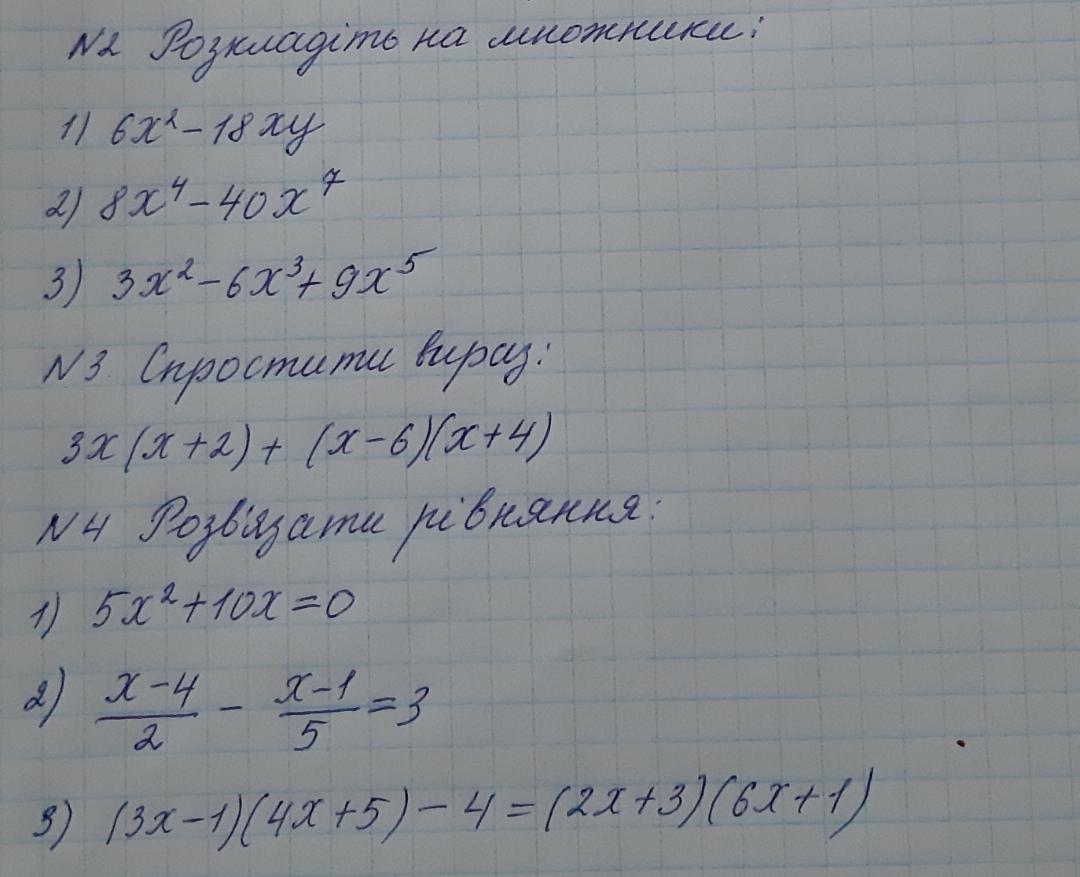 N2 Розкладіть на множники:
1) 6x² - 18xy
2) 8x⁴ - 40x⁷
3) 3x² - 6x³ + 9x⁵
N3. Спростити вираз:
3x(x+2) + (x-6)(x+4)
N4 Розв'язати рівняння:
1) 5x² + 10x = 0
2) (x-4)/2 - (x-1)/5 = 3
3) (3x-1)(4x+5) - 4 = (2x+3)(6x+1)